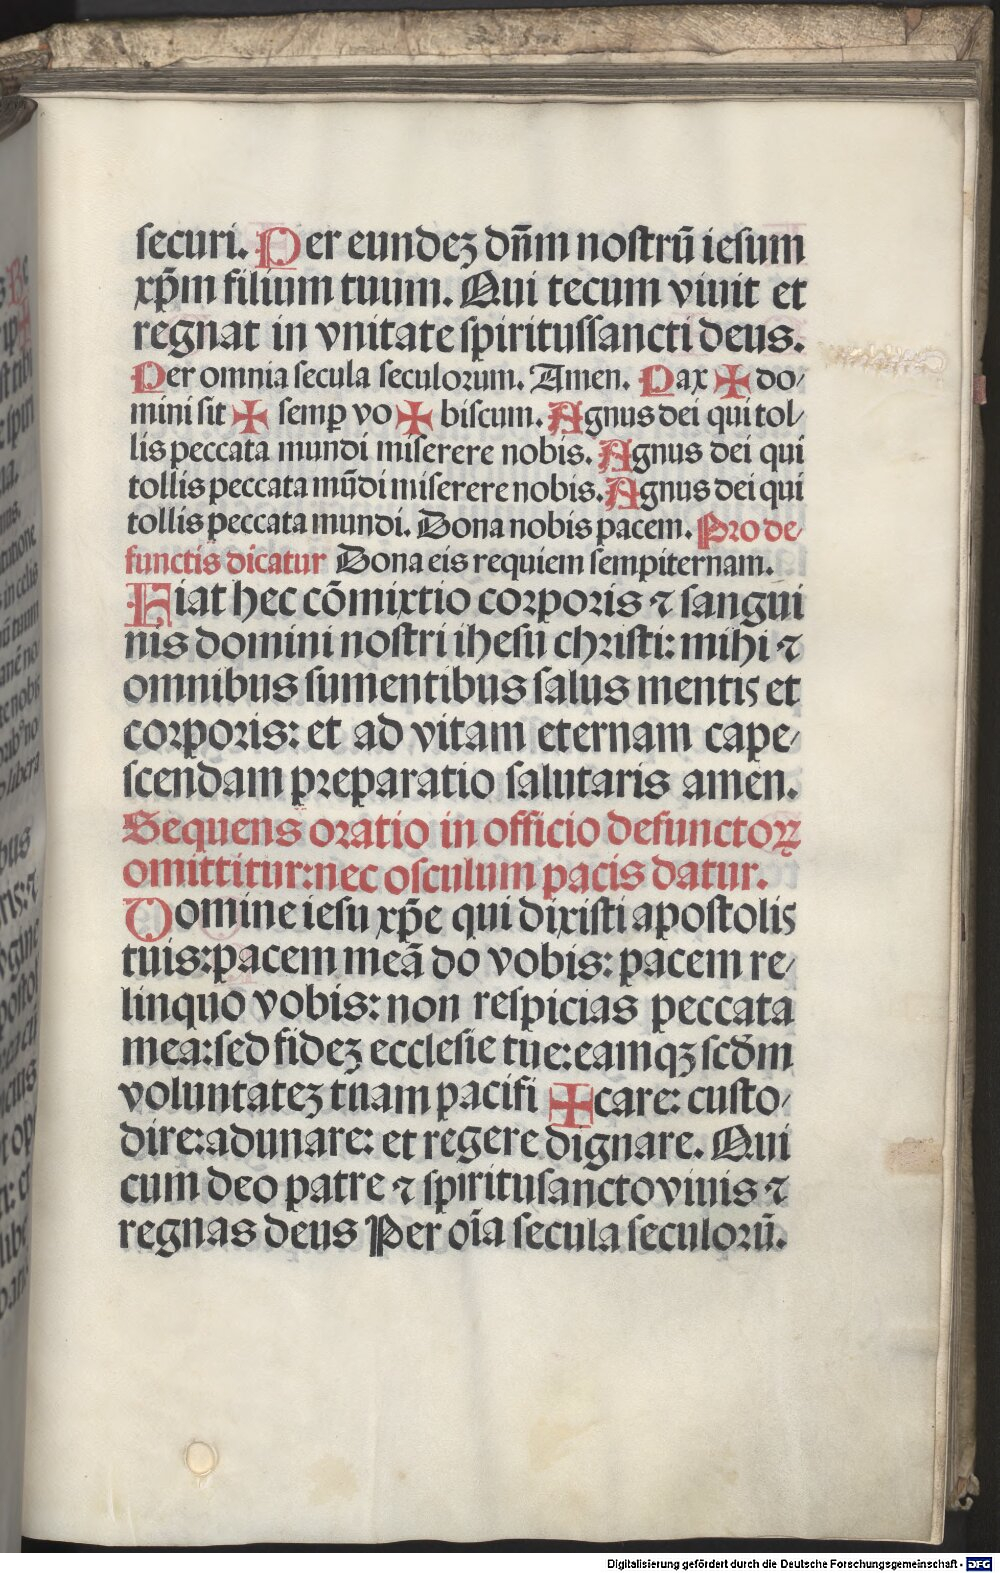 securi. Per eundeꝫ dñm nostrū iesum
xp̄m filium tuum. Qui tecum viuit et
regnat in vnitate spiritussancti deus.
Per omnia secula seculorum. Amen. Pax ✠ do/
mini sit ✠ semꝑ vo ✠ biscum. Agnus dei qui tol/
lis peccata mundi miserere nobis. Agnus dei qui
tollis peccata mūdi miserere nobis. Agnus dei qui
tollis peccata mundi. Dona nobis pacem. Pro de/
functis dicatur Dona eis requiem sempiternam.
Fiat hec cōmixtio corporis ⁊ sangui
nis domini nostri ihesu christi: mihi ⁊
omnibus sumentibus salus mentis et
corporis: et ad vitam eternam cape/
scendam preparatio salutaris amen.
Sequens oratio in officio defunctoꝝ
omittitur: nec osculum pacis datur.
Domine iesu xp̄e qui dixisti apostolis
tuis: pacem meā do vobis: pacem re/
linquo vobis: non respicias peccata
mea: sed fideꝫ ecclesie tue: eamqꝫ scd̄m
voluntateꝫ tuam pacifi ✠ care: custo/
dire: adunare: et regere dignare. Qui
cum deo patre ⁊ spiritusancto viuis ⁊
regnas deus Per oīa secula seculorū.
Digitalisierung gefördert durch die Deutsche Forschungsgemeinschaft - DFG